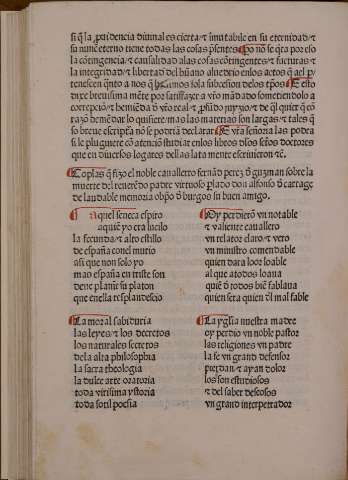 si q̃ la ꝓuidencia diuinal es cierta ⁊ imutabile en su eternidad ⁊
su nunc̃ eterno tiene todas las cosas p̃sentes Po nõ se q̃ta por eso
la cõtingencia ⁊ causalidad alas cosas cõtingentes ⁊ futuras ⁊
la integridad ⁊ libertad del hũano aluedrio enlos actos q̃ ael p
tenescen quãto a nos q̃ somos sola subcesiõ delos tpõs Esto
dixe breuissima mẽte por satisfazer a vr̃o mãdado sometiendolo a
correpciõ ⁊ hemiẽda d̃ vr̃o real ⁊ ꝓfũdo iuyzio ⁊ de q̃l quier q̃ cõ
razõ demẽdar lo quisiere mas las materias son largas ⁊ tales q̃
so breue escriptura nõ se podriã declarar E vr̃a señoria las podra
si le pluguiere cõ atenciõ studiar enlos libros dlos sctõs doctores
que en diuersos logares dellas lata mente escriuieron ⁊c̃.
Coplas q̃ fizo el noble cauallero fernãd perez d̃ guzmãn sobre la
muerte del reuerẽdo padre virtuoso ꝑlado don alfonso d̃ cartage
de laudable memoria obp̃o d̃ burgos su buen amigo.
Aquel seneca espiro
aquiẽ yo era lucilo
la facundia ⁊ alto estilo
de españa conel murio
asi que non solo yo
mas españa en triste son
deue plañir su platon
que enella resplandescio
La moral sabiduria
las leyes ⁊ los decretos
los naturales secretos
dela alta philosophia
la sacra theologia
la dulce arte oratoria
toda verissima ystoria
toda sotil poesia
Oy perdierõ vn notable
⁊ valiente cauallero
vn relator claro ⁊ vero
vn ministro comendable
quien dara loor loable
al que atodos loaua
quiẽ d̃ todos biẽ fablaua
quien sera quien d̃l mal fable
La yglsia nuestra madre
oy perdio vn noble pastor
las religiones vn padre
la fe vn grand defensor
pierdan ⁊ ayan dolor
los son estudiosos
⁊ del saber deseosos
vn grand interpretador